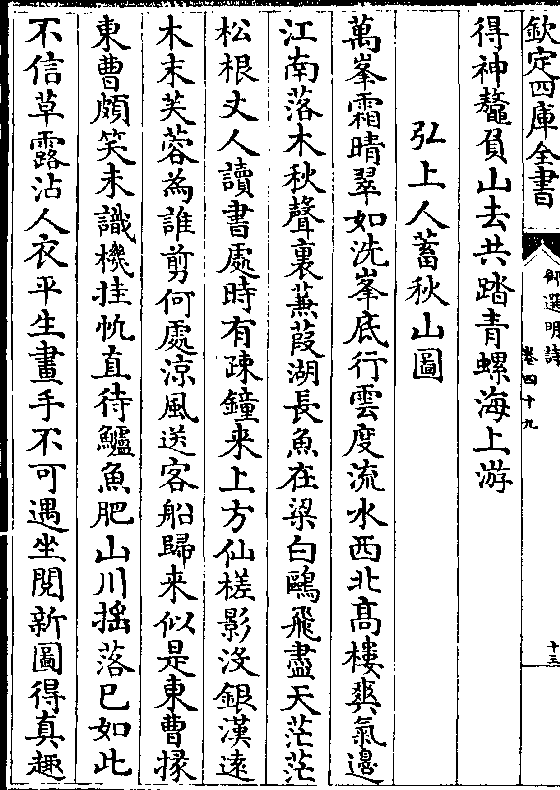 欽定四庫全書
御選明詩
卷四十九
十三
得神鼇負山去共踏青螺海上游
弘上人蓄秋山圖
萬峯霜晴翠如洗峯底行雲度流水西北髙樓爽氣邊
江南落木秋聲裏蒹葭湖長魚在梁白鷗飛盡天茫茫
松根丈人讀書處時有疎鐘来上方仙槎影沒銀漢遠
木末芙蓉為誰剪何處涼風送客船歸来似是東曹掾
東曹頗笑未識機挂帆直待鱸魚肥山川揺落已如此
不信草露沾人衣平生畫手不可遇坐閱新圖得真趣